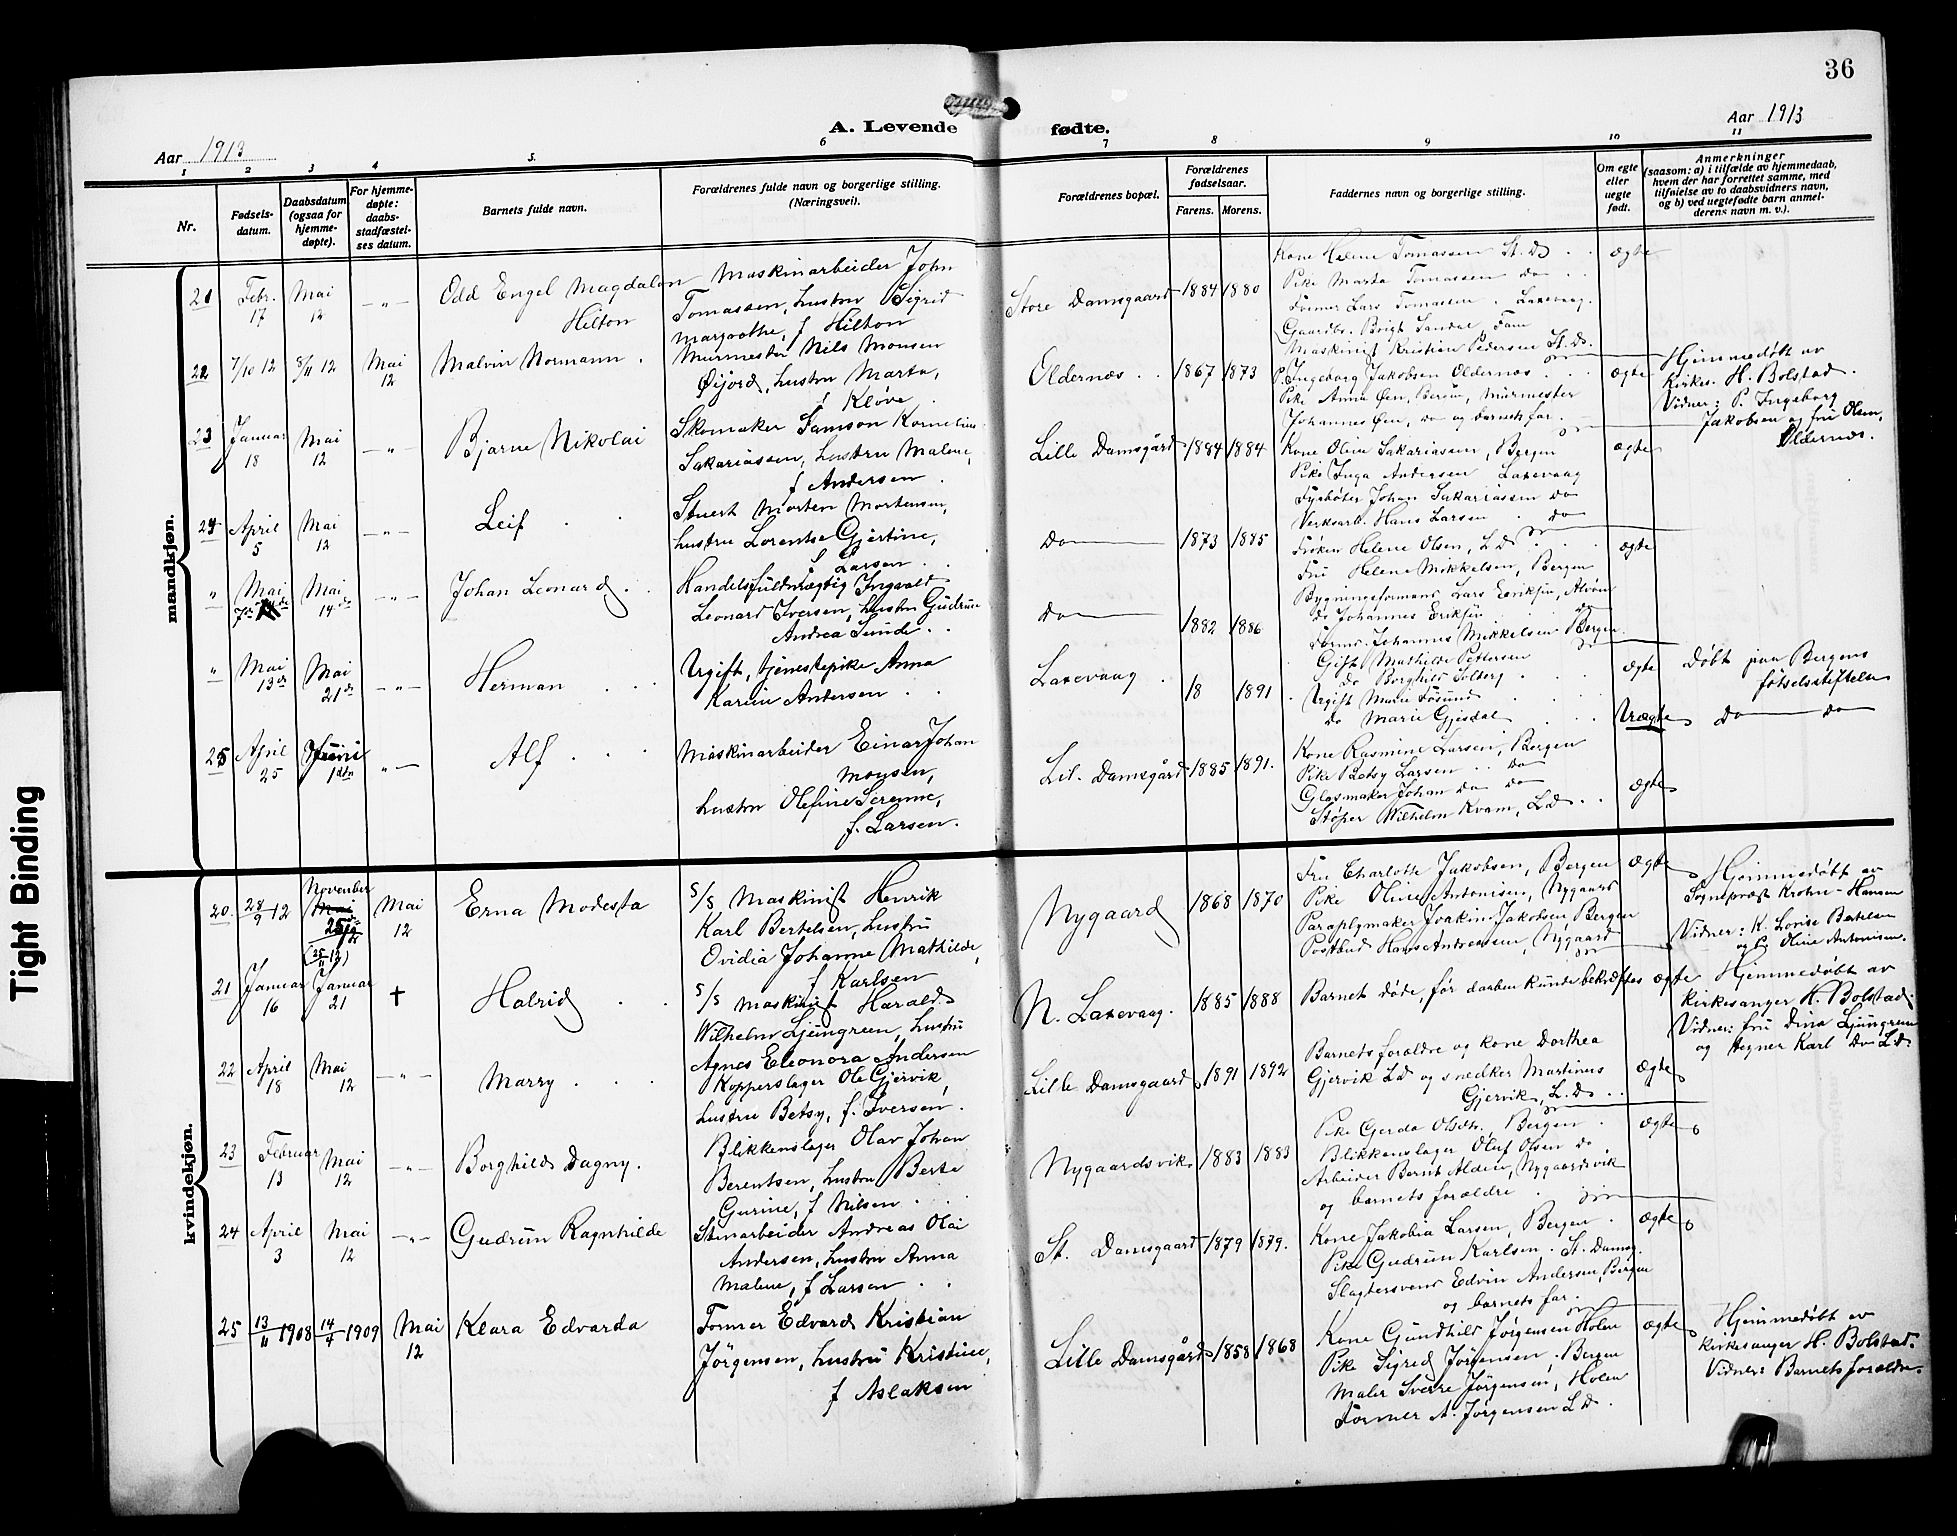 36
A. Levende fødte.
Aar 1913
Aar 1913
1 2 3 4 5. 6 7 8 9 10 11
Nr.
Fødsels-datum.
Daabsdatum (ogsaa for hjemme-døpte).
For hjemme-døpte: daabs-stadfæstel-ses datum.
Barnets fulde navn.
Forældrenes fulde navn og borgerlige stilling. (Næringsvei).
Forældrenes bopæl.
Forældrenes fødselsaar.
Farens. Morens.
Faddernes navn og borgerlige stilling.
Om egte eller uegte født.
Anmerkninger
(saasom: a) i tilfælde av hjemmedaab, hvem der har forrettet samme, med tilføielse av to daabsvidners navn, og b) ved uegtefødte barn anmelderens navn m. v.).
mandkjøn.
21 Febr. 17 Mai 12 -"- Odd Engel Magdalon Hilton
Maskinarbeider John
Tomassen, hustru Sigrid
Margoothe, f Hilton
Store Damsgaard 1884 1880
Kone Helene Tomassen St. D.
Pike Marta Tomassen do
Former Lars Tomassen Laxevaag
Gaardbr. Brigt Sandal, Fane
Maskinist Kristian Pedersen St. D.
ægte
22 7/10 12 8/11 12 Mai 12 Malvin Normann
Murmester Nils Monsen
Øijord, hustru Marta,
f Kløve
Eldernæs 1867 1873
P. Ingeborg Jakobsen Oldernæs
Pike Anna Øen, Bergen, Murmester
Johannes Øen, do og barnets far.
ægte
Hjemmedøbt av
Kirkes. H. Bolstad.
Vidner: P. Ingeborg
Jakobsen og fru Olsen,
Oldernæs.
23 Januar 18 Mai 12 -"- Bjarne Nikolai
Skomaker Samson Kornelius
Sakariassen, hustru Malene,
f Andersen
Lille Damsgård 1884 1884
Kone Oline Sakariassen, Bergen
Pike Inga Andersen Laxevaag
Fyrbøter Johan Sakariassen do
Verksarb. Hans Larsen do
ægte
24 April 5 Mai 12 -"- Leif
Stuert Morten Mortensen,
hustru Lorentse Gjertine,
f Larsen
Do 1873 1885
Frøken Helene Olsen, L. D.
Fru Helene Mikkelsen, Bergen
Bygningsformand Lars Eriksen, Alvøen
Do Johannes Eriksen
Formd. Johannes Mikkelsen Bergen
ægte
" Mai 7de Mai 14de -"- Johan Leonard
Handelsfuldmægtig Ingvald
Leonard Iversen, hustru Gudrun
Andrea Sunde
Do 1882 1886
Gift Mathilde Pettersen
do Borghild Solberg
Ugift Marie Fosund
do Marie Gjesdal
ægte
Døbt paa Bergens
fødselsstiftelse
" Mai 13de Mai 21de -"- Herman
Ugift, tjenestepike Anna
Karine Andersen
Laxevaag 18 1891
Uægte
Do Do
25 April 25 Juni 1ste "- Alf
Maskinarbeider Einar Johan
Monsen,
hustru Olefine Serenne,
f. Larsen.
Lil. Damsgård 1885 1891.
Kone Rasmine Larsen, Bergen
Pike Betsy Larsen do
Glasmaker Johan do do
Støper Wilhelm Kvam, L. D.
ægte
kvindekjøn.
20. 28/9 12 November 25/11 12 Mai 12 Erna Modesta
S/S Maskinist Henrik
Karl Bertelsen, hustru
Ovidia Johanne Mathilde,
f Karlsen
Nygaard 1868 1870
Fru Charlotte Jakobsen, Bergen
Pike Oline Antonisen, Nygaard
Paraplymaker Joakin Jakobsen Bergen
Postbud Hans Andreassen, Nygaard
ægte
Hjemmedøbt av
Sogneprest Krohn-Hansen
Vidner: K. Lovise Bertelsen
og P. Oline Antonisen.
21 Januar 16 Januar 21 † Halrid
S/S Maskinist Harald
Wilhelm Ljungreen, hustru
Agnes Eleonora Andersen
N. Laxevaag. 1885 1888
Barnet døde, før daaben kunde bekræftes
ægte
Hjemmedøbt av
kirkesanger H. Bolstad.
Vidner: fru Dina Ljungreen
og Karl Do L.D.
22 April 18 Mai 12 -"- Marry
Kopperslager Ole Gjervik,
hustru Betsy, f. Iversen.
Lille Damsgaard 1891 1892
Barnets forældre og kone Dorthea
Gjervik L.D og snedker Martinus
Gjervik, L. D.
ægte
23 Februar 13 Mai 12 -"- Borghild Dagny.
Blikkenslager Olav Johan
Berentsen, hustru Berta
Gurine, f Nilsen
Nygaardsvik 1883 1883
Pike Gerda Olsen, Bergen
Blikkenslager Oluf Olsen do
Arbeider Bernt Alden, Nygaardsvik
og barnets forældre
ægte
24 April 3 Mai 12 -"- Gudrun Ragnhilde
Stenarbeider Andreas Olai
Andersen, hustru Anna
Malene, f Larsen
St. Damsgaard 1879 1879.
Kone Jakobia Larsen, Bergen
Pike Gudrun Karlsen. St. Damsg.
Slagtersvend Edvin Andersen, Bergen
og barnets far.
ægte
25 13/11 1908 14/4 1909 Mai 12 Klara Edvarda
Former Edvard Kristian
Jørgensen, hustru Kristine,
f Aslaksen
Lille Damsgård 1858 1868
Kone Gundhild Jørgensen Holen
Pike Sigrid Jørgensen, Bergen
Maler Sverre Jørgensen, Holen
Former A. Jørgensen L. D.
ægte
Hjemmedøbt av
kirkesanger H. Bolstad.
Vidner: Barnets forældre.
Tight Binding